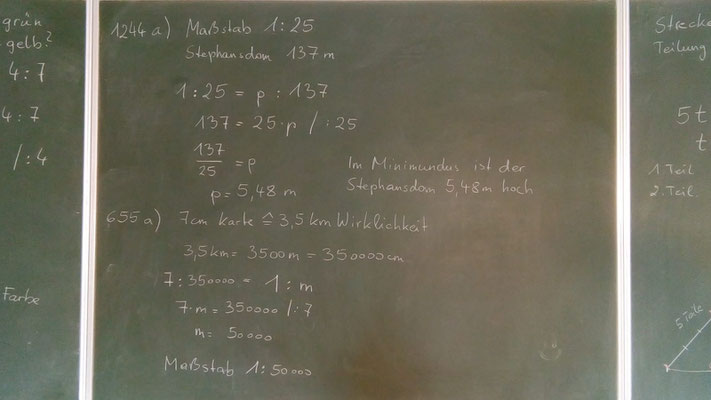 grün
gelb?
4:7
4:7
/:4
Farbe
1244 a) Maßstab 1:25
Stephansdom 137 m
1:25 = p : 137
137 = 25·p /:25
137
25
= p
p = 5,48 m
Im Minimundus ist der
Stephansdom 5,48m hoch
655 a) 7cm Karte ≙ 3,5 km Wirklichkeit
3,5km = 3500m = 350000cm
7 : 350000 = 1 : m
7·m = 350000 /:7
m = 50000
Maßstab 1:50000
Strecke
Teilung
5t
t
1. Teil
2. Teil
5 Teile